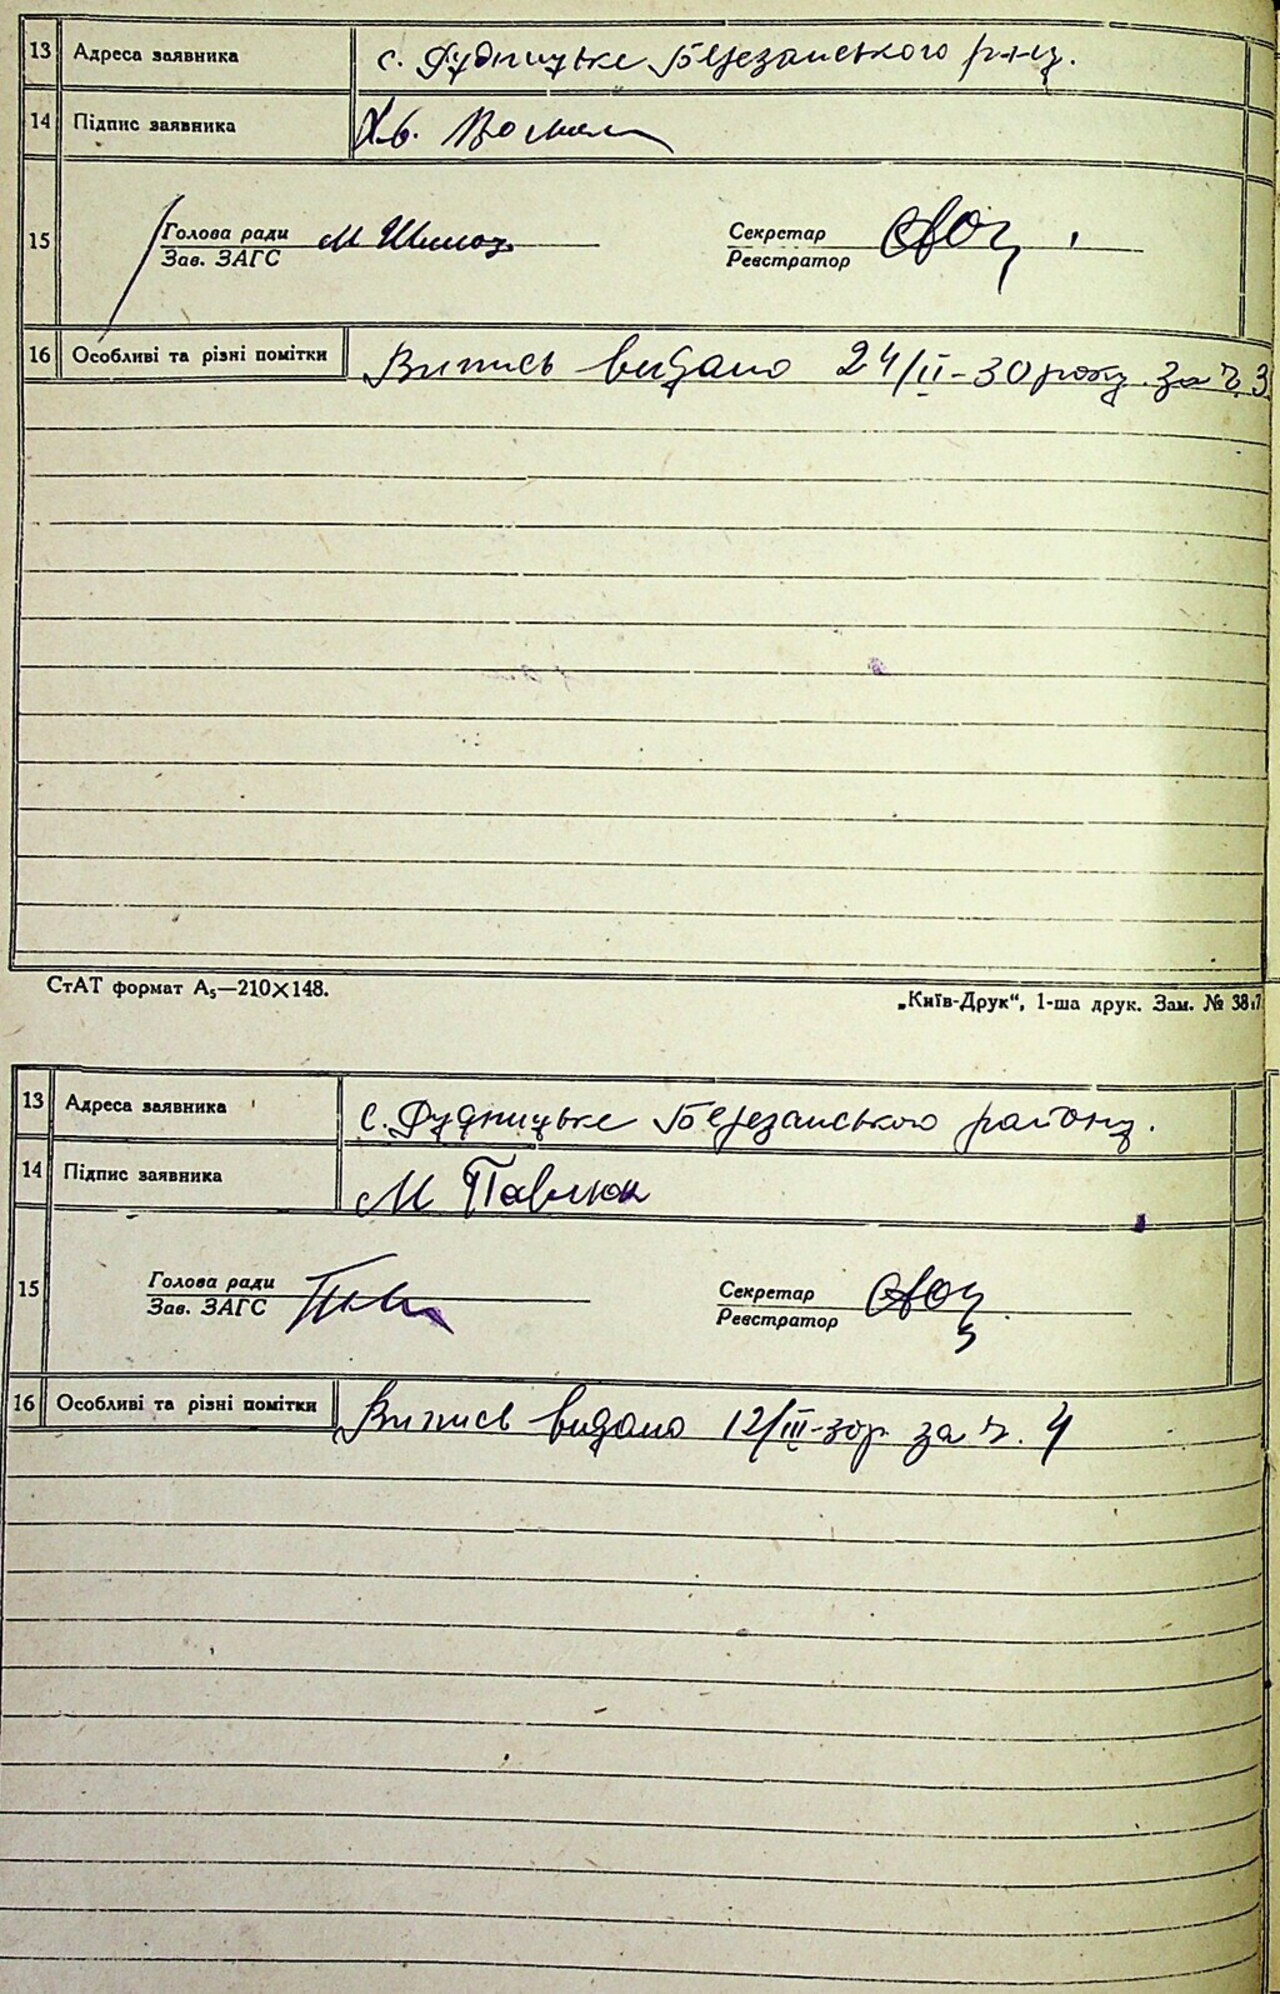 13 Адреса заявника с. Дудницьке Березанського р-ну.
14 Підпис заявника Хв.
15 Голова ради М Секретар
Зав. ЗАГС Реєстратор
16 Особливі та різні помітки Випись видано 24/II-30 року за ч. 3
СтАТ формат А₅—210×148.
„Київ-Друк“, 1-ша друк. Зам. №
13 Адреса заявника с. Дудницьке Березанського району.
14 Підпис заявника М Павлюк
15 Голова ради Секретар
Зав. ЗАГС Реєстратор
16 Особливі та різні помітки Випись видано 12/III-30р. за ч. 4